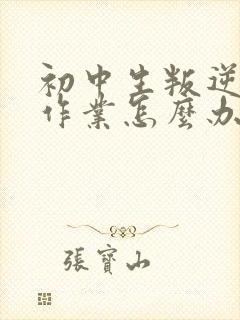 初中生叛逆
作業怎麼办
張寶山